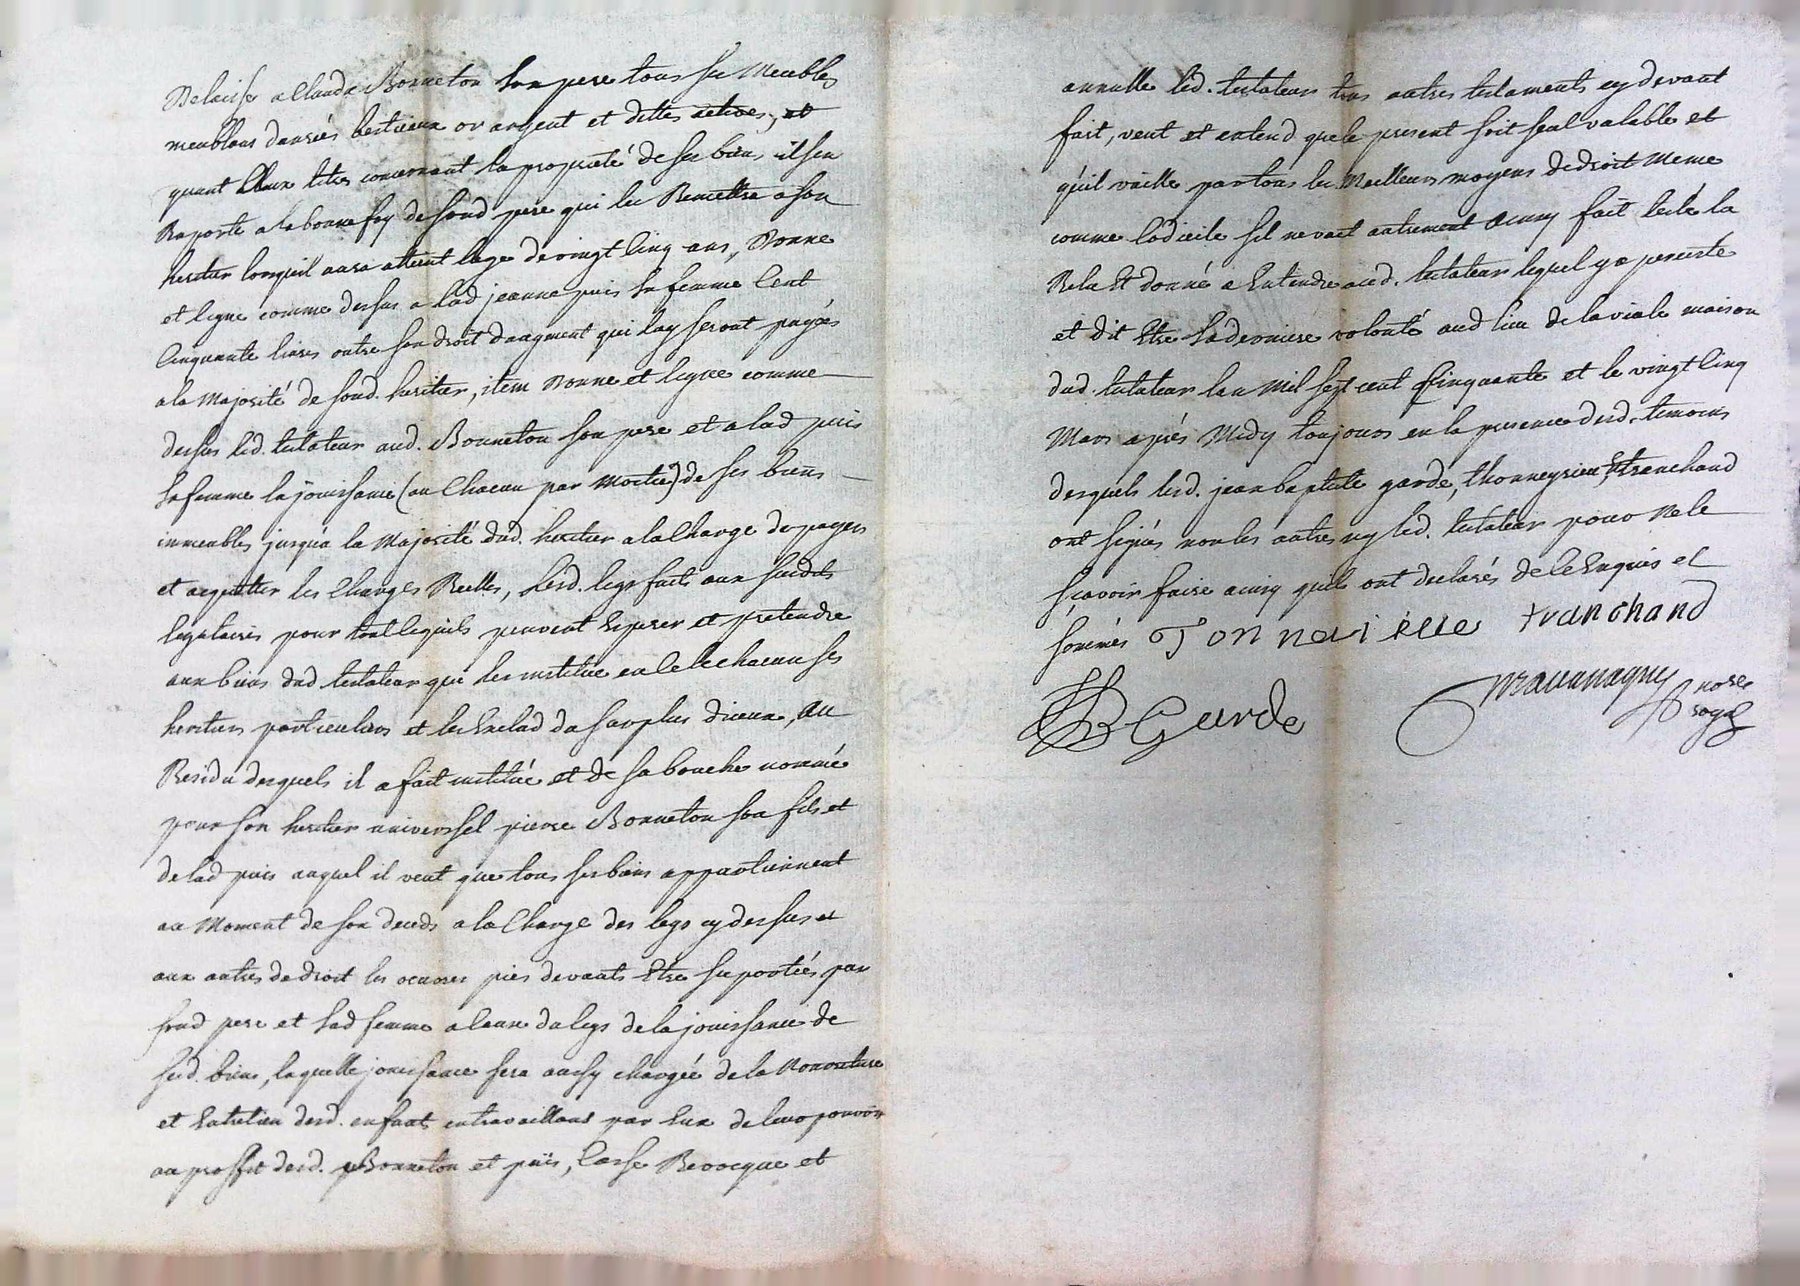 Delaisse a Claude Bonneton son pere tous ses Meubles
meublans danrés bestieaux or argent et dettes actives, et
quant aux titres concernant la proprieté de ses biens il sen
Raporte a la bonne foy de sond pere qui les Remettra a son
heritier lorsquil aura atteint lage de vingt cinq ans, Donne
et legue comme dessus a lad jeanne puis sa femme Cent
Cinquante livres outre son droit daugment qui luy seront payés
a la Majorité de sond. heritier, item Donne et legue comme
dessus led. testateur aud. Bonneton son pere et a lad puis
sa femme la jouissance (au Chacun par Moitié) de ses biens
immeubles jusqua la Majorité dud. heritier a la Charge de payer
et acquitter les Charges Reelles, lesd. legs faits aux susdits
legataires pour tout lequels peuvent Esperer et pretendre
aux biens dud. testateur qui les institue en Celle chacun ses
heritiers particuliers et les Exclud du surplus diceux, Au
Residu desquels il a fait institué et de sa bouche nommé
pour son heritier universsel pierre Bonneton son fils et
de lad puis auquel il veut que tous ses biens appartiennent
au Moment de son deceds a la Charge des legs cy dessus et
aux autres de droit les oeuvres pies devants Etre suportés par
sond pere et sad femme a cause du legs de la jouissance de
sesd. biens, laquelle jouissance sera aussy chargée de la Nourriture
et Entretien desd. enfant en travaillans par Eux de leur pouvoir
au proffit desd. Bonneton et puis, Casse Revocque et
annulle led. testateur tous autres testaments cy devant
fait, veut et entend que le present soit seul valable et
quil vaille par tous les Meilleurs moyens de droit Meme
comme Codicile sil ne vaut autrement Ainsy fait leu la
Releu Et donné a Entendre aud. testateur lequel y a persisté
et dit Etre sa derniere volonté aud lieu de la viale maison
dud. testateur lan Mil sept cent Cinquante et le vingt Cinq
Mars après Midy toujours en la presence desd. temoins
desquels lesd. jean baptiste garde, thonneyrieu, Et tranchand
ont signés non les autres ny led. testateur pour ne le
sçavoir faire ainsy quils ont declarés de ce Enquis et
sommés Tonnei tranchand
JB Garde
nore
roya